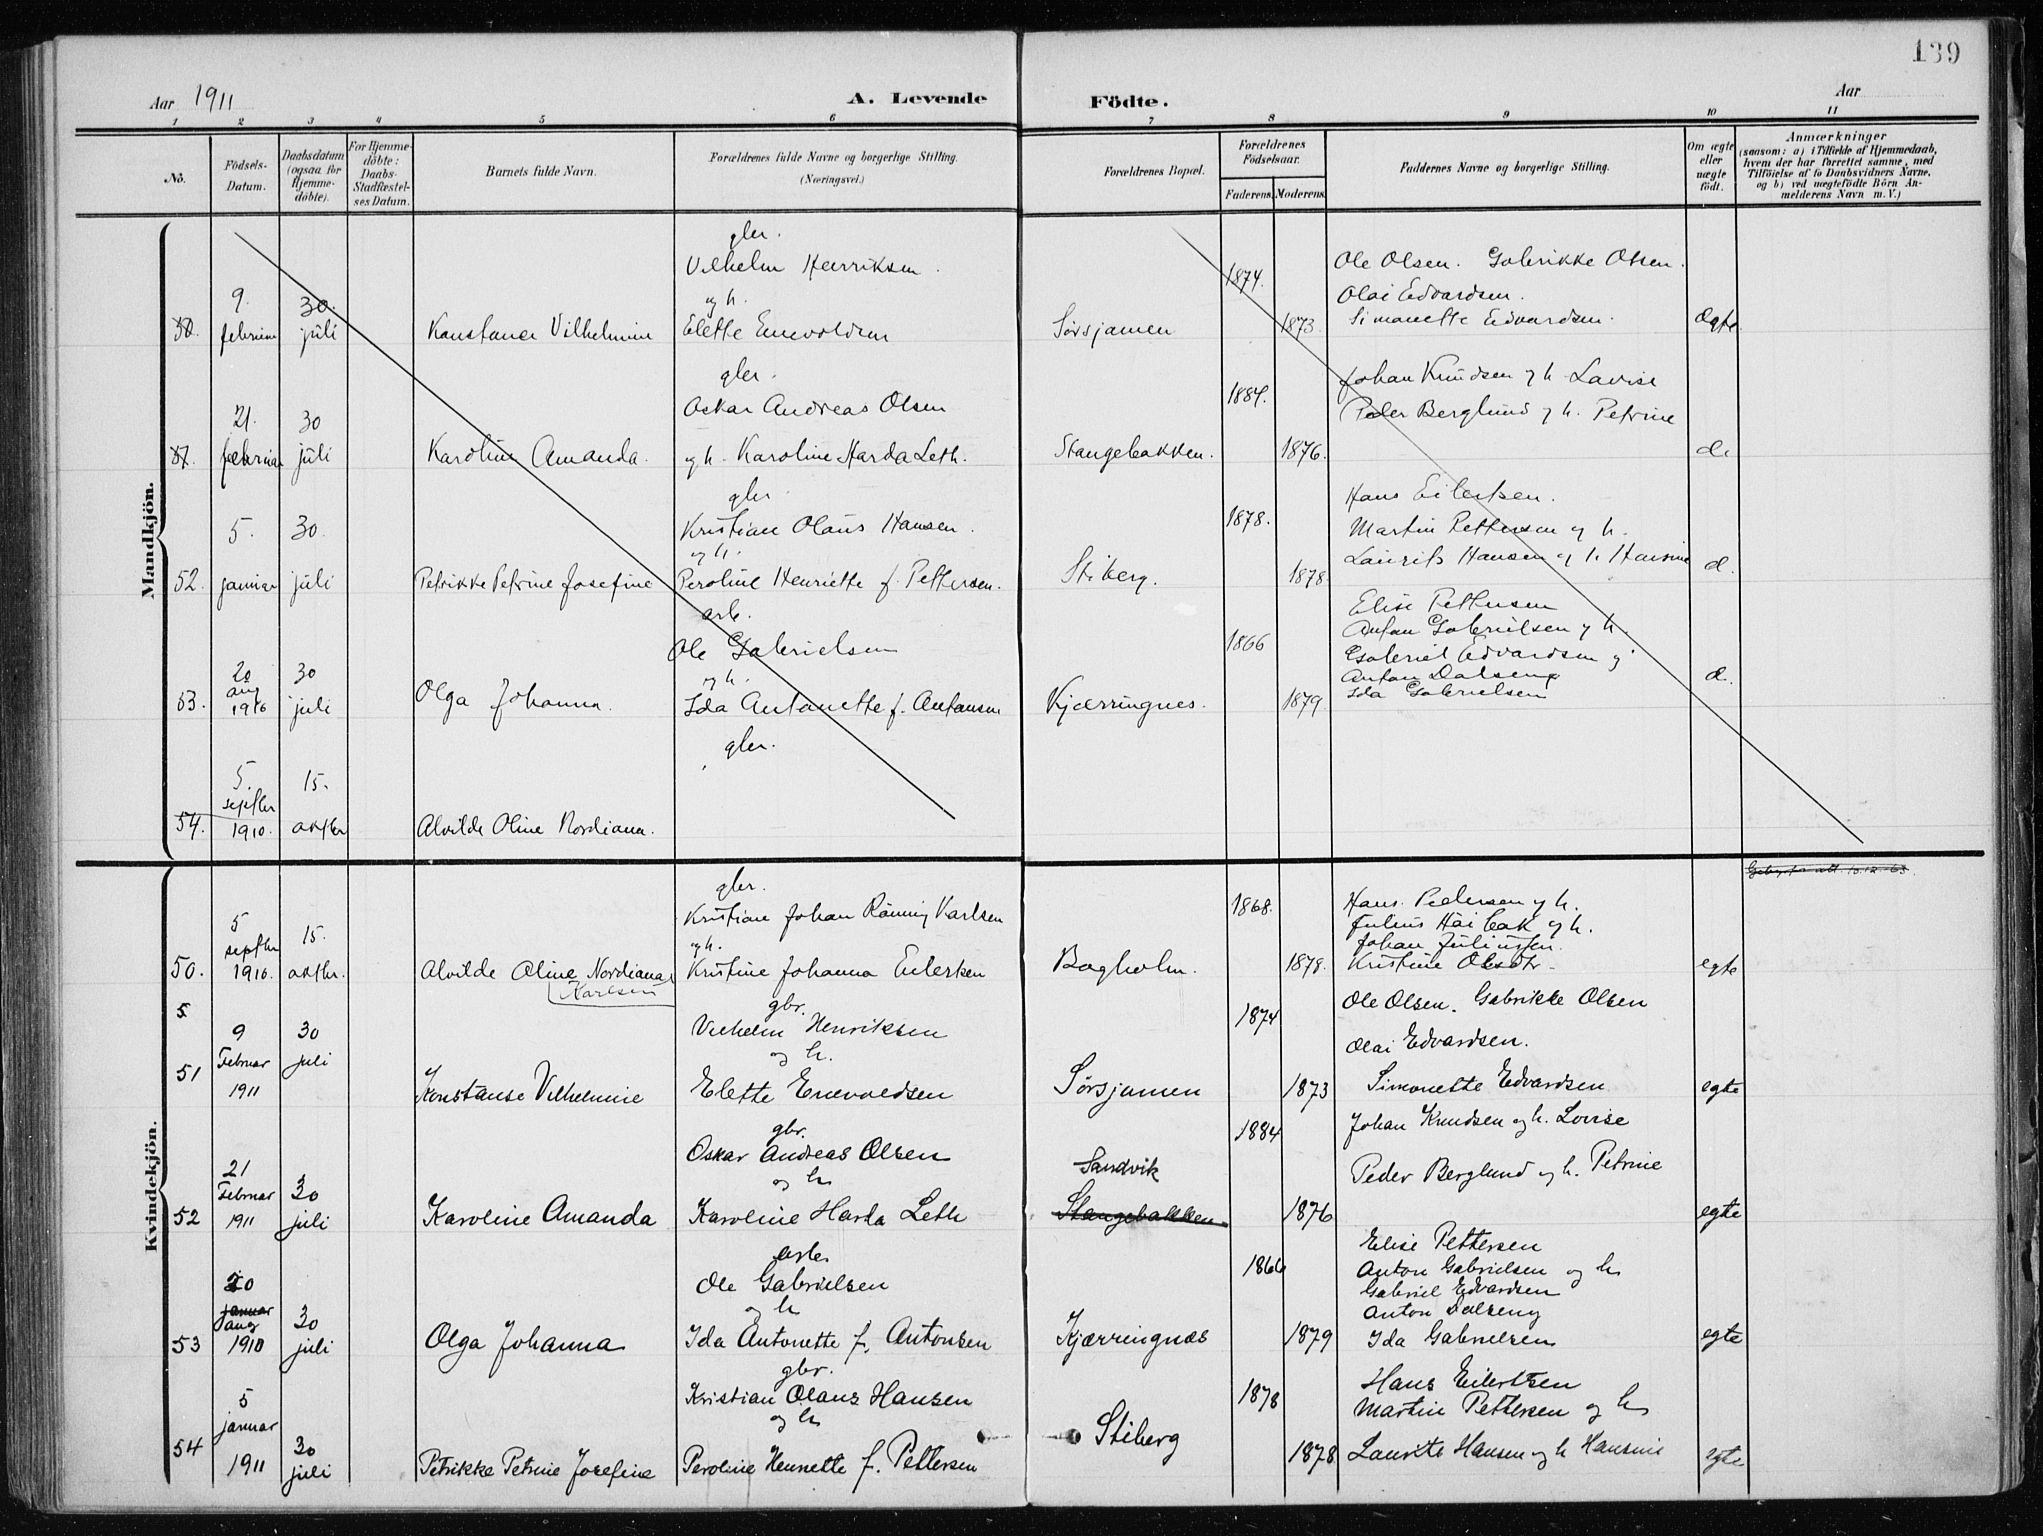 139
Aar 1911
A. Levende Födte.
Aar
1 2 3 4 5 6 7 8 9 10 11
No.
Födsels-Datum.
Daabsdatum (ogsaa for Hjemme-döbte).
For Hjemme-döbte: Daabs-Stadfæstel-ses Datum.
Barnets fulde Navn.
Forældrenes fulde Navne og borgerlige Stilling.
(Næringsvei.)
Forældrenes Bopæl.
Forældrenes Födselsaar.
Faderens. Moderens.
Faddernes Navne og borgerlige Stilling.
Om ægte eller uægte födt.
Anmærkninger
(saasom: a) i Tilfælde af Hjemmedaab,
hvem der har forrettet samme, med
Tilföielse af to Daabsvidners Navne,
og b) ved uægtefödte Börn An-
melderens Navn m. V.)
Mandkjön.
gbr.
Vilhelm Henriksen.
1874.
Ole Olsen. Gabrikke Olsen.
9. 30. og h. Olai Edvardsen.
februar juli Konstance Vilhelmine Elette Enevoldsen Sørsjamen 1873. Simonette Edvardsen. Ægte
gbr.
Johan Knudsen og h. Lovise
1884.
21. 30 Oskar Andreas Olsen Peder Berglund og h. Petrine
februar juli Karoline Amanda. og h. Karoline Harda Leth. Stangebakken. 1876. d.
gbr
Hans Eilertsen.
5. 30. Kristian Olaus Hansen. 1878. Martin Pettersen og h.
og h. Lauritz Hansen og h. Hansine
52. januar juli Petrikke Petrine Josefine Peroline Henriette f. Pettersen. Stiberg. 1878 d.
arb.
Elise Pettersen
1866 Anton Gabrielsen og h.
Ole Gabrielsen Gabriel Edvardsen og
20 30 og h. Anton Dalseng
aug
53. 1910 juli Olga Johanna. Ida Antonette f. Antonsen Kjærringnes. 1879. Ida Gabrielsen d.
gbr.
5. 15.
septbr
54. 1910. oktbr Alvilde Oline Nordiana.
Kvindekjön.
gbr.
1868. Hans Pedersen og h.
5 Kristian Johan Rånning Karlsen
septbr 15. og h. Johan Juliussen.
50. 1910. oktbr. Alvilde Oline Nordiana Kristine Johanna Eilertsen Bogholm. 1878. Kristine Olsdtr. egte
Karlsen
5
gbr. Ole Olsen. Gabrikke Olsen
9 30 Vilhelm Henriksen 1874
Februar juli og h. Olai Edvardsen.
51 1911 Konstanse Vilhelmine Elette Enevoldsen Sørsjamen 1873 Simonette Edvardsen egte
gbr. 1884 Johan Knudsen og h. Lovise
Oskar Andreas Olsen
21 og h Sandvik Peder Berglund og h. Petrine
Februar 30
52 1911 juli Karoline Amanda Karoline Harda Leth Stangebakken 1876 egte
arb Elise Pettersen
20 Ole Gabrielsen 1866 Anton Gabrielsen og h
januar Gabriel Edvardsen
aug 30 og h Anton Dalseng
53 1910 juli Olga Johanna Ida Antonette f. Antonsen Kjærringnes 1879 Ida Gabrielsen egte
gbr. Hans Eilertsen
5 Kristian Olaus Hansen 1878 Martin Pettersen og h
januar og h
54 1911 30 juli Petrikke Petrine Josefine Peroline Henriette f. Pettersen Stiberg 1878 Laurits Hansen og h Hansine egte